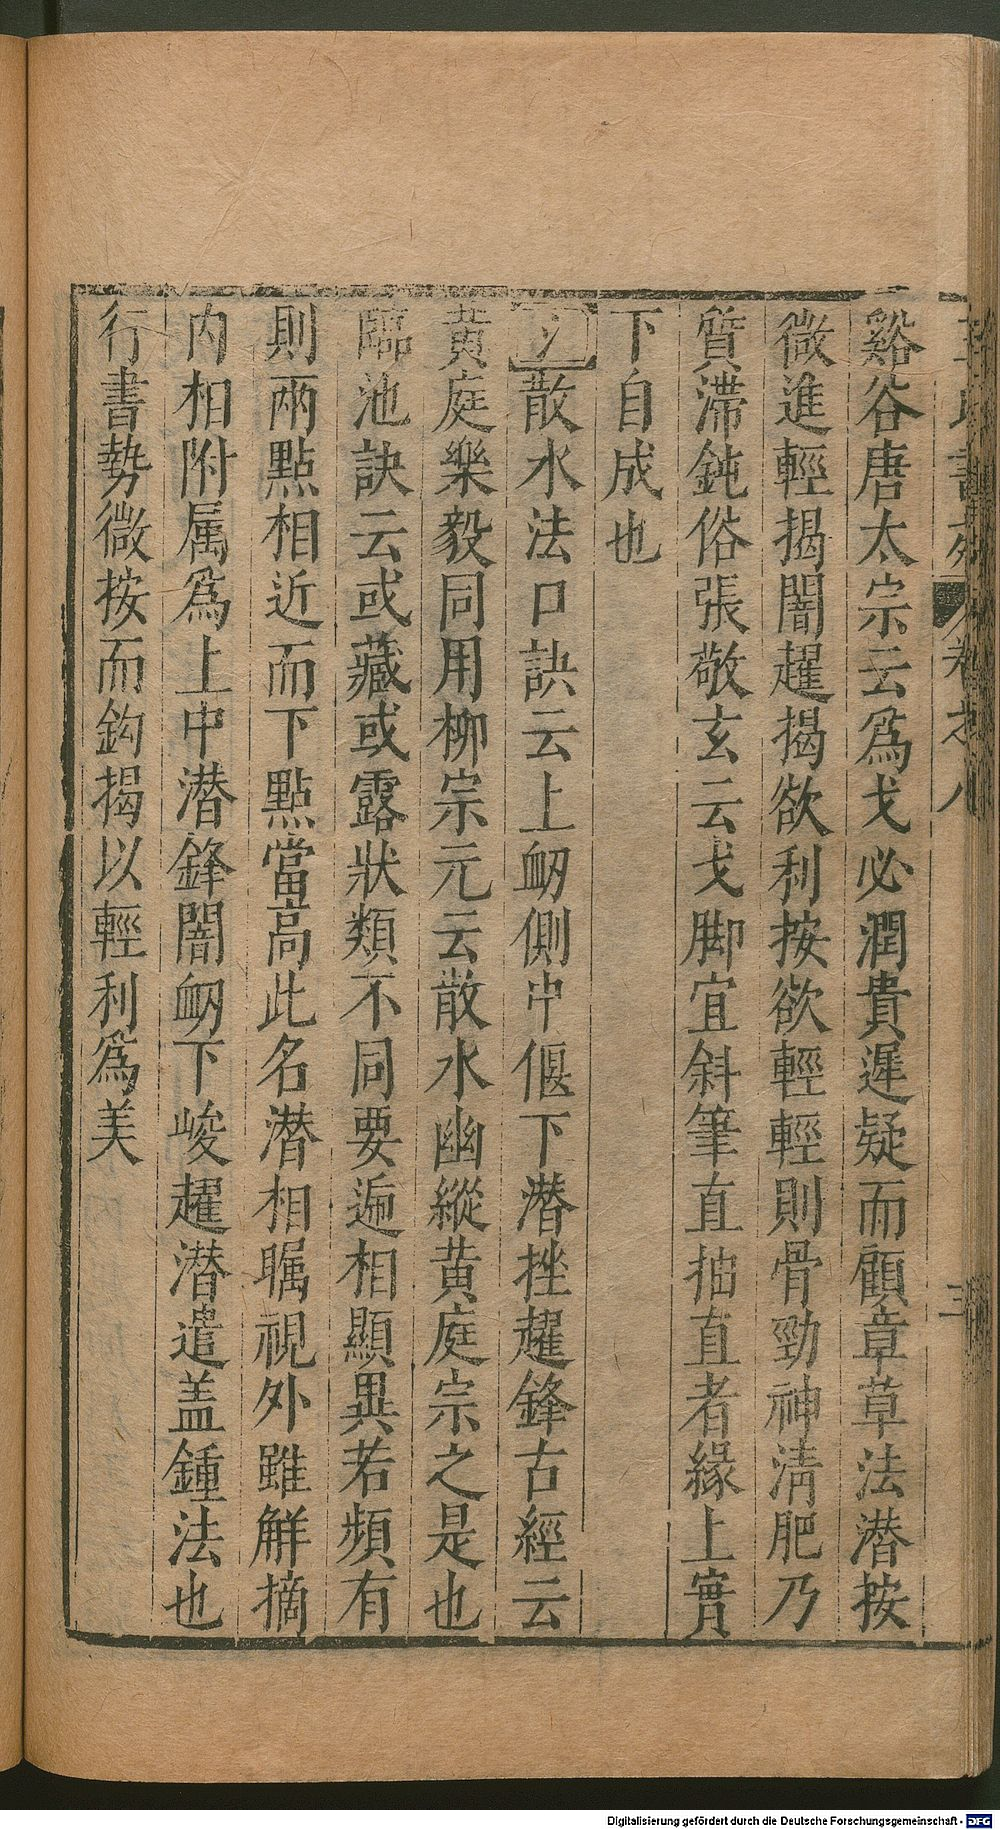 王氏書苑 卷之八 三
谿谷唐太宗云爲戈必潤貴遲疑而顧章草法潜按
微進輕揭闇趯揭欲利按欲輕輕則骨勁神清肥乃
質滯鈍俗張敬玄云戈脚宜斜筆直抽直者緣上實
下自成也
氵散水法口訣云上衂側中偃下潜挫趯鋒古經云
黄庭樂毅同用柳宗元云散水幽縱黄庭宗之是也
臨池訣云或藏或露狀類不同要遍相顯異若頻有
則兩點相近而下點當高此名潜相矚視外雖解摘
内相附属爲上中潜鋒闇衂下峻趯潜遣盖鍾法也
行書勢微按而鈎揭以輕利爲美
Digitalisierung gefördert durch die Deutsche Forschungsgemeinschaft - DFG